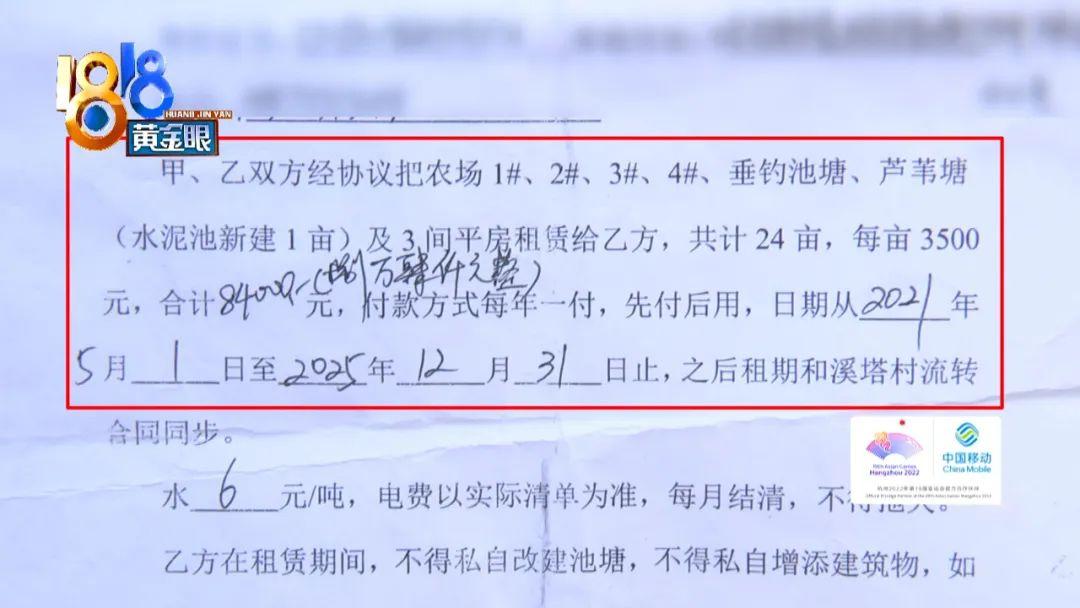 1818
HUANG JIN YAN
黄金眼
甲、乙双方经协议把农场 1#、2#、3#、4#、垂钓池塘、芦苇塘
（水泥池新建 1 亩）及 3 间平房租赁给乙方，共计 24 亩，每亩 3500
(捌万肆仟元整)
元，合计84000元，付款方式每年一付，先付后用，日期从2021年
5月1日至2025年12月31日止，之后租期和溪塔村流转
合同同步。
19th Asian Games
Hangzhou 2022
中国移动
China Mobile
杭州2022年第19届亚运会官方合作伙伴
Official Prestige Partner of the 19th Asian Games Hangzhou 2022
水6元/吨，电费以实际清单为准，每月结清，不得拖欠。
乙方在租赁期间，不得私自改建池塘，不得私自增添建筑物，如